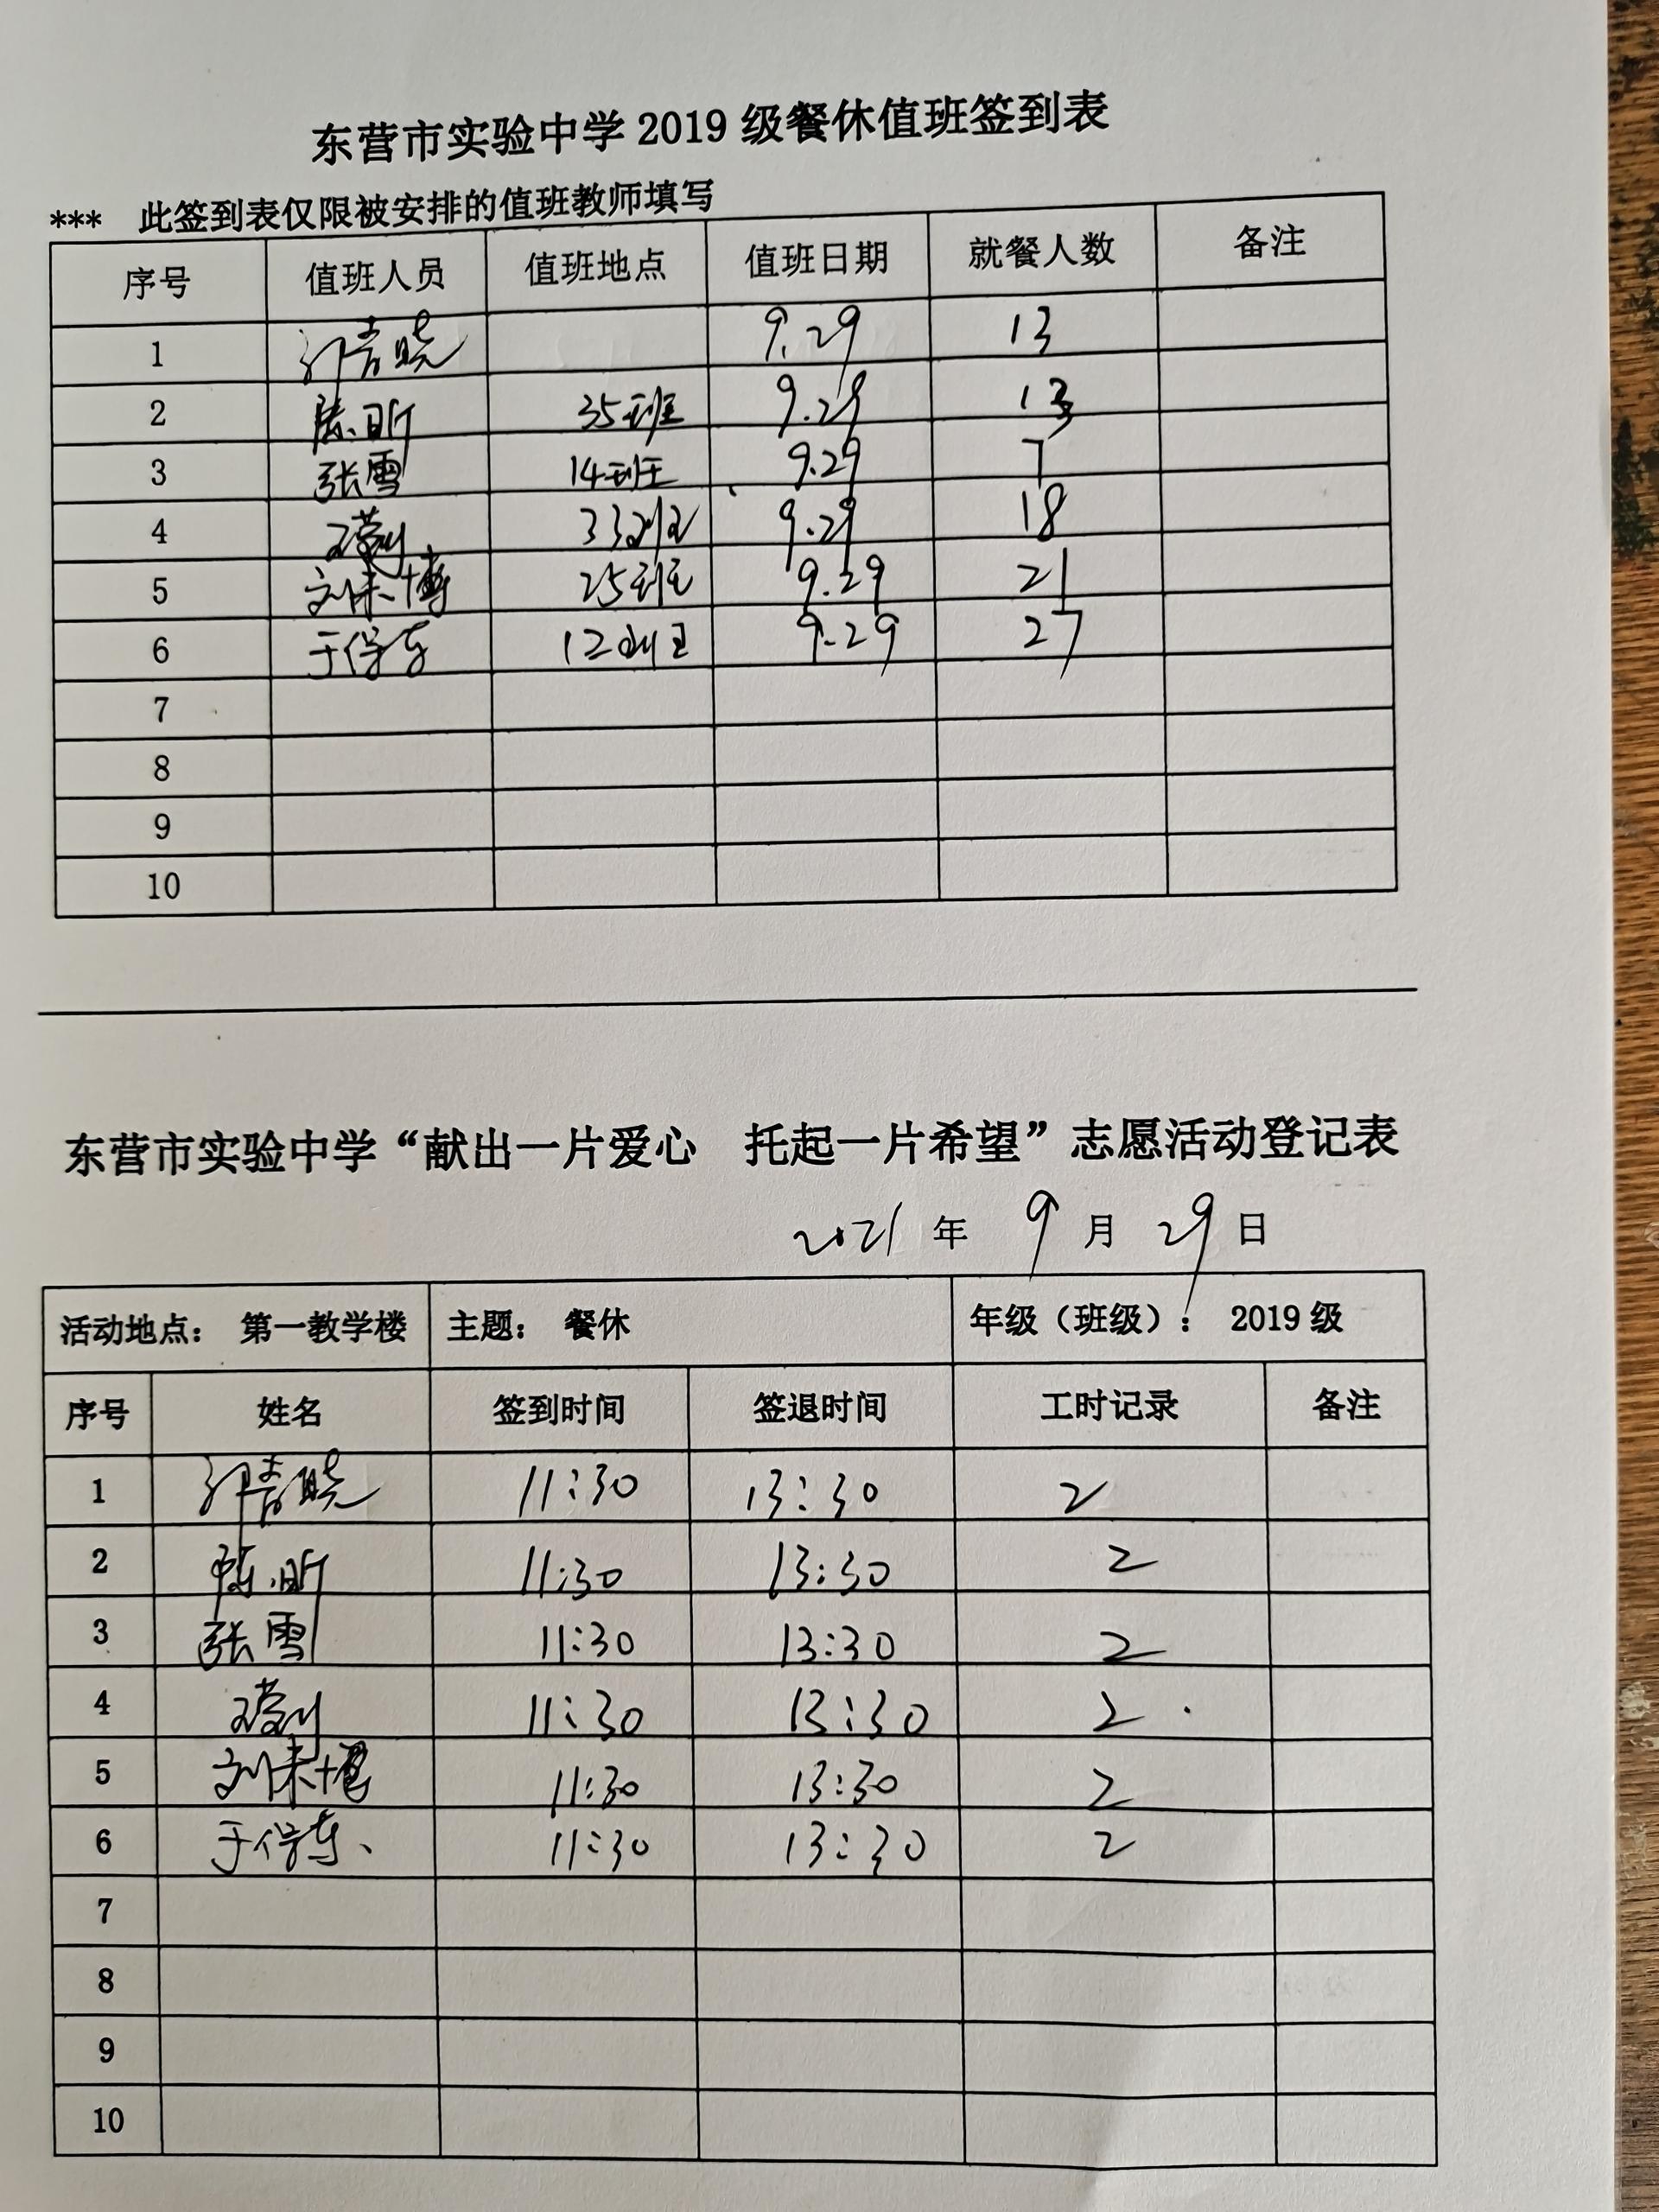 东营市实验中学2019级餐休值班签到表
*** 此签到表仅限被安排的值班教师填写
序号 值班人员 值班地点 值班日期 就餐人数 备注
1 9.29 13
2 陈昕 35班 9.29 13
3 张雪 14班 9.29 7
4 33班 9.29 18
5 25班 9.29 21
6 于保东 12班 9.29 27
7
8
9
10
东营市实验中学“献出一片爱心 托起一片希望”志愿活动登记表
2021年 9月 29日
活动地点： 第一教学楼 主题： 餐休 年级（班级）： 2019级
序号 姓名 签到时间 签退时间 工时记录 备注
1 11:30 13:30 2
2 陈昕 11:30 13:30 2
3 张雪 11:30 13:30 2
4 11:30 13:30 2
5 11:30 13:30 2
6 于保东 11:30 13:30 2
7
8
9
10